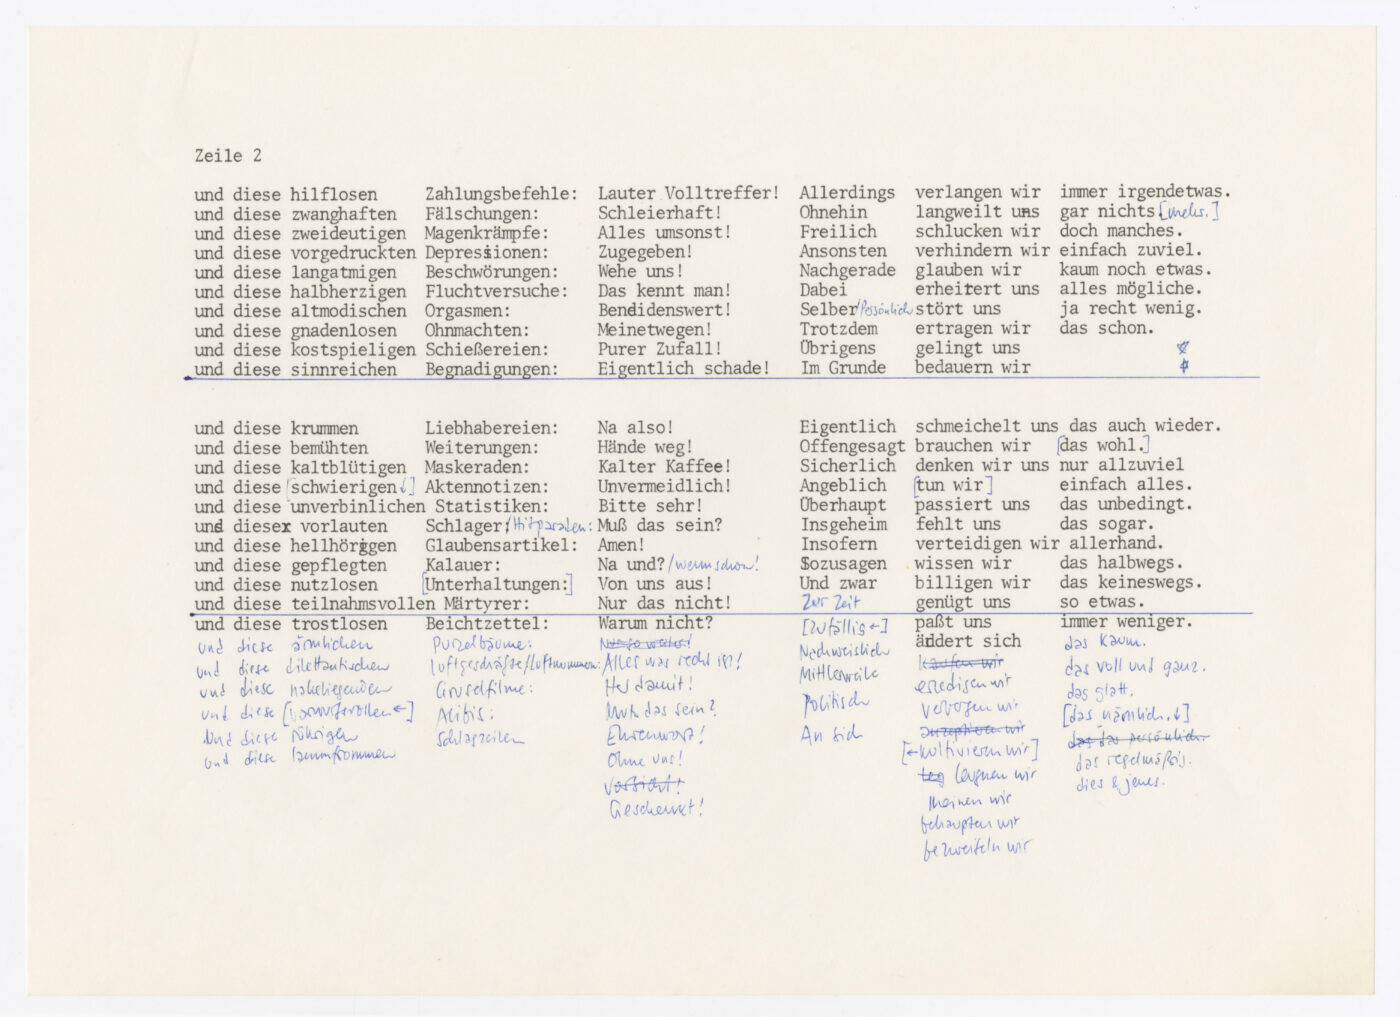 Zeile 2
und diese hilflosen Zahlungsbefehle: Lauter Volltreffer! Allerdings verlangen wir immer irgendetwas.
und diese zwanghaften Fälschungen: Schleierhaft! Ohnehin langweilt uns gar nichts [mehr.]
und diese zweideutigen Magenkrämpfe: Alles umsonst! Freilich schlucken wir doch manches.
und diese vorgedruckten Depressionen: Zugegeben! Ansonsten verhindern wir einfach zuviel.
und diese langatmigen Beschwörungen: Wehe uns! Nachgerade glauben wir kaum noch etwas.
und diese halbherzigen Fluchtversuche: Das kennt man! Dabei erheitert uns alles mögliche.
und diese altmodischen Orgasmen: Beneidenswert! Selber/Persönlich stört uns ja recht wenig.
und diese gnadenlosen Ohnmachten: Meinetwegen! Trotzdem ertragen wir das schon.
und diese kostspieligen Schießereien: Purer Zufall! Übrigens gelingt uns
und diese sinnreichen Begnadigungen: Eigentlich schade! Im Grunde bedauern wir
und diese krummen Liebhabereien: Na also! Eigentlich schmeichelt uns das auch wieder.
und diese bemühten Weiterungen: Hände weg! Offengesagt brauchen wir [das wohl.]
und diese kaltblütigen Maskeraden: Kalter Kaffee! Sicherlich denken wir uns nur allzuviel
und diese [schwierigen↓] Aktennotizen: Unvermeidlich! Angeblich [tun wir] einfach alles.
und diese unverbinlichen Statistiken: Bitte sehr! Überhaupt passiert uns das unbedingt.
und diesex vorlauten Schlager/Hitparaden: Muß das sein? Insgeheim fehlt uns das sogar.
und diese hellhörigen Glaubensartikel: Amen! Insofern verteidigen wir allerhand.
und diese gepflegten Kalauer: Na und?/wennschon! Sozusagen wissen wir das halbwegs.
und diese nutzlosen [Unterhaltungen:] Von uns aus! Und zwar billigen wir das keineswegs.
und diese teilnahmsvollen Märtyrer: Nur das nicht! Zur Zeit genügt uns so etwas.
und diese trostlosen Beichtzettel: Warum nicht? [Zufällig←] paßt uns immer weniger.
und diese ärmlichen Purzelbäume: Nur so weiter! Nachweislich ändert sich das kaum.
und diese dilettantischen Luftgeschäfte/Luftnummern: Alles was recht ist! Mittlerweile kaufen wir das voll und ganz.
und diese naheliegenden Gruselfilme: Her damit! Politisch erledigen wir das glatt.
und diese [vorwurfsvollen←] Alibis: Muß das sein? An sich verbogen wir [das nämlich.↓]
und diese rührigen Schlagzeilen Ehrenwort! akzeptieren wir das das persönlich.
und diese lammfrommen Ohne uns! [←kultivieren wir] das regelmäßig.
Vorsicht! leugnen wir dies & jenes.
Geschenkt! meinen wir
behaupten wir
bezweifeln wir